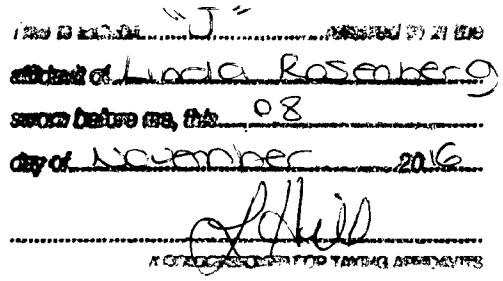 This is Exhibit "J" referred to in the
affidavit of Linda Rosenberg
sworn before me, this 08
day of November 2016
A COMMISSIONER FOR TAKING AFFIDAVITS